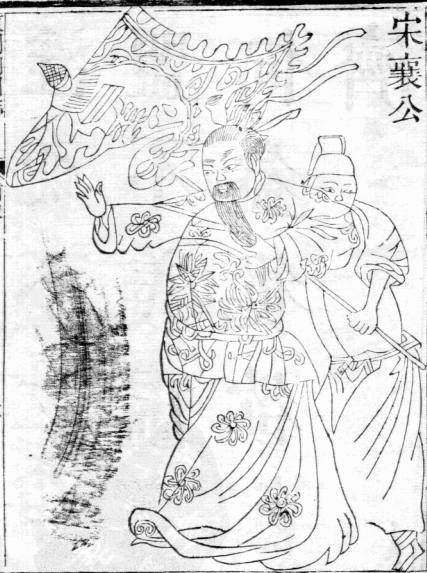 宋襄公